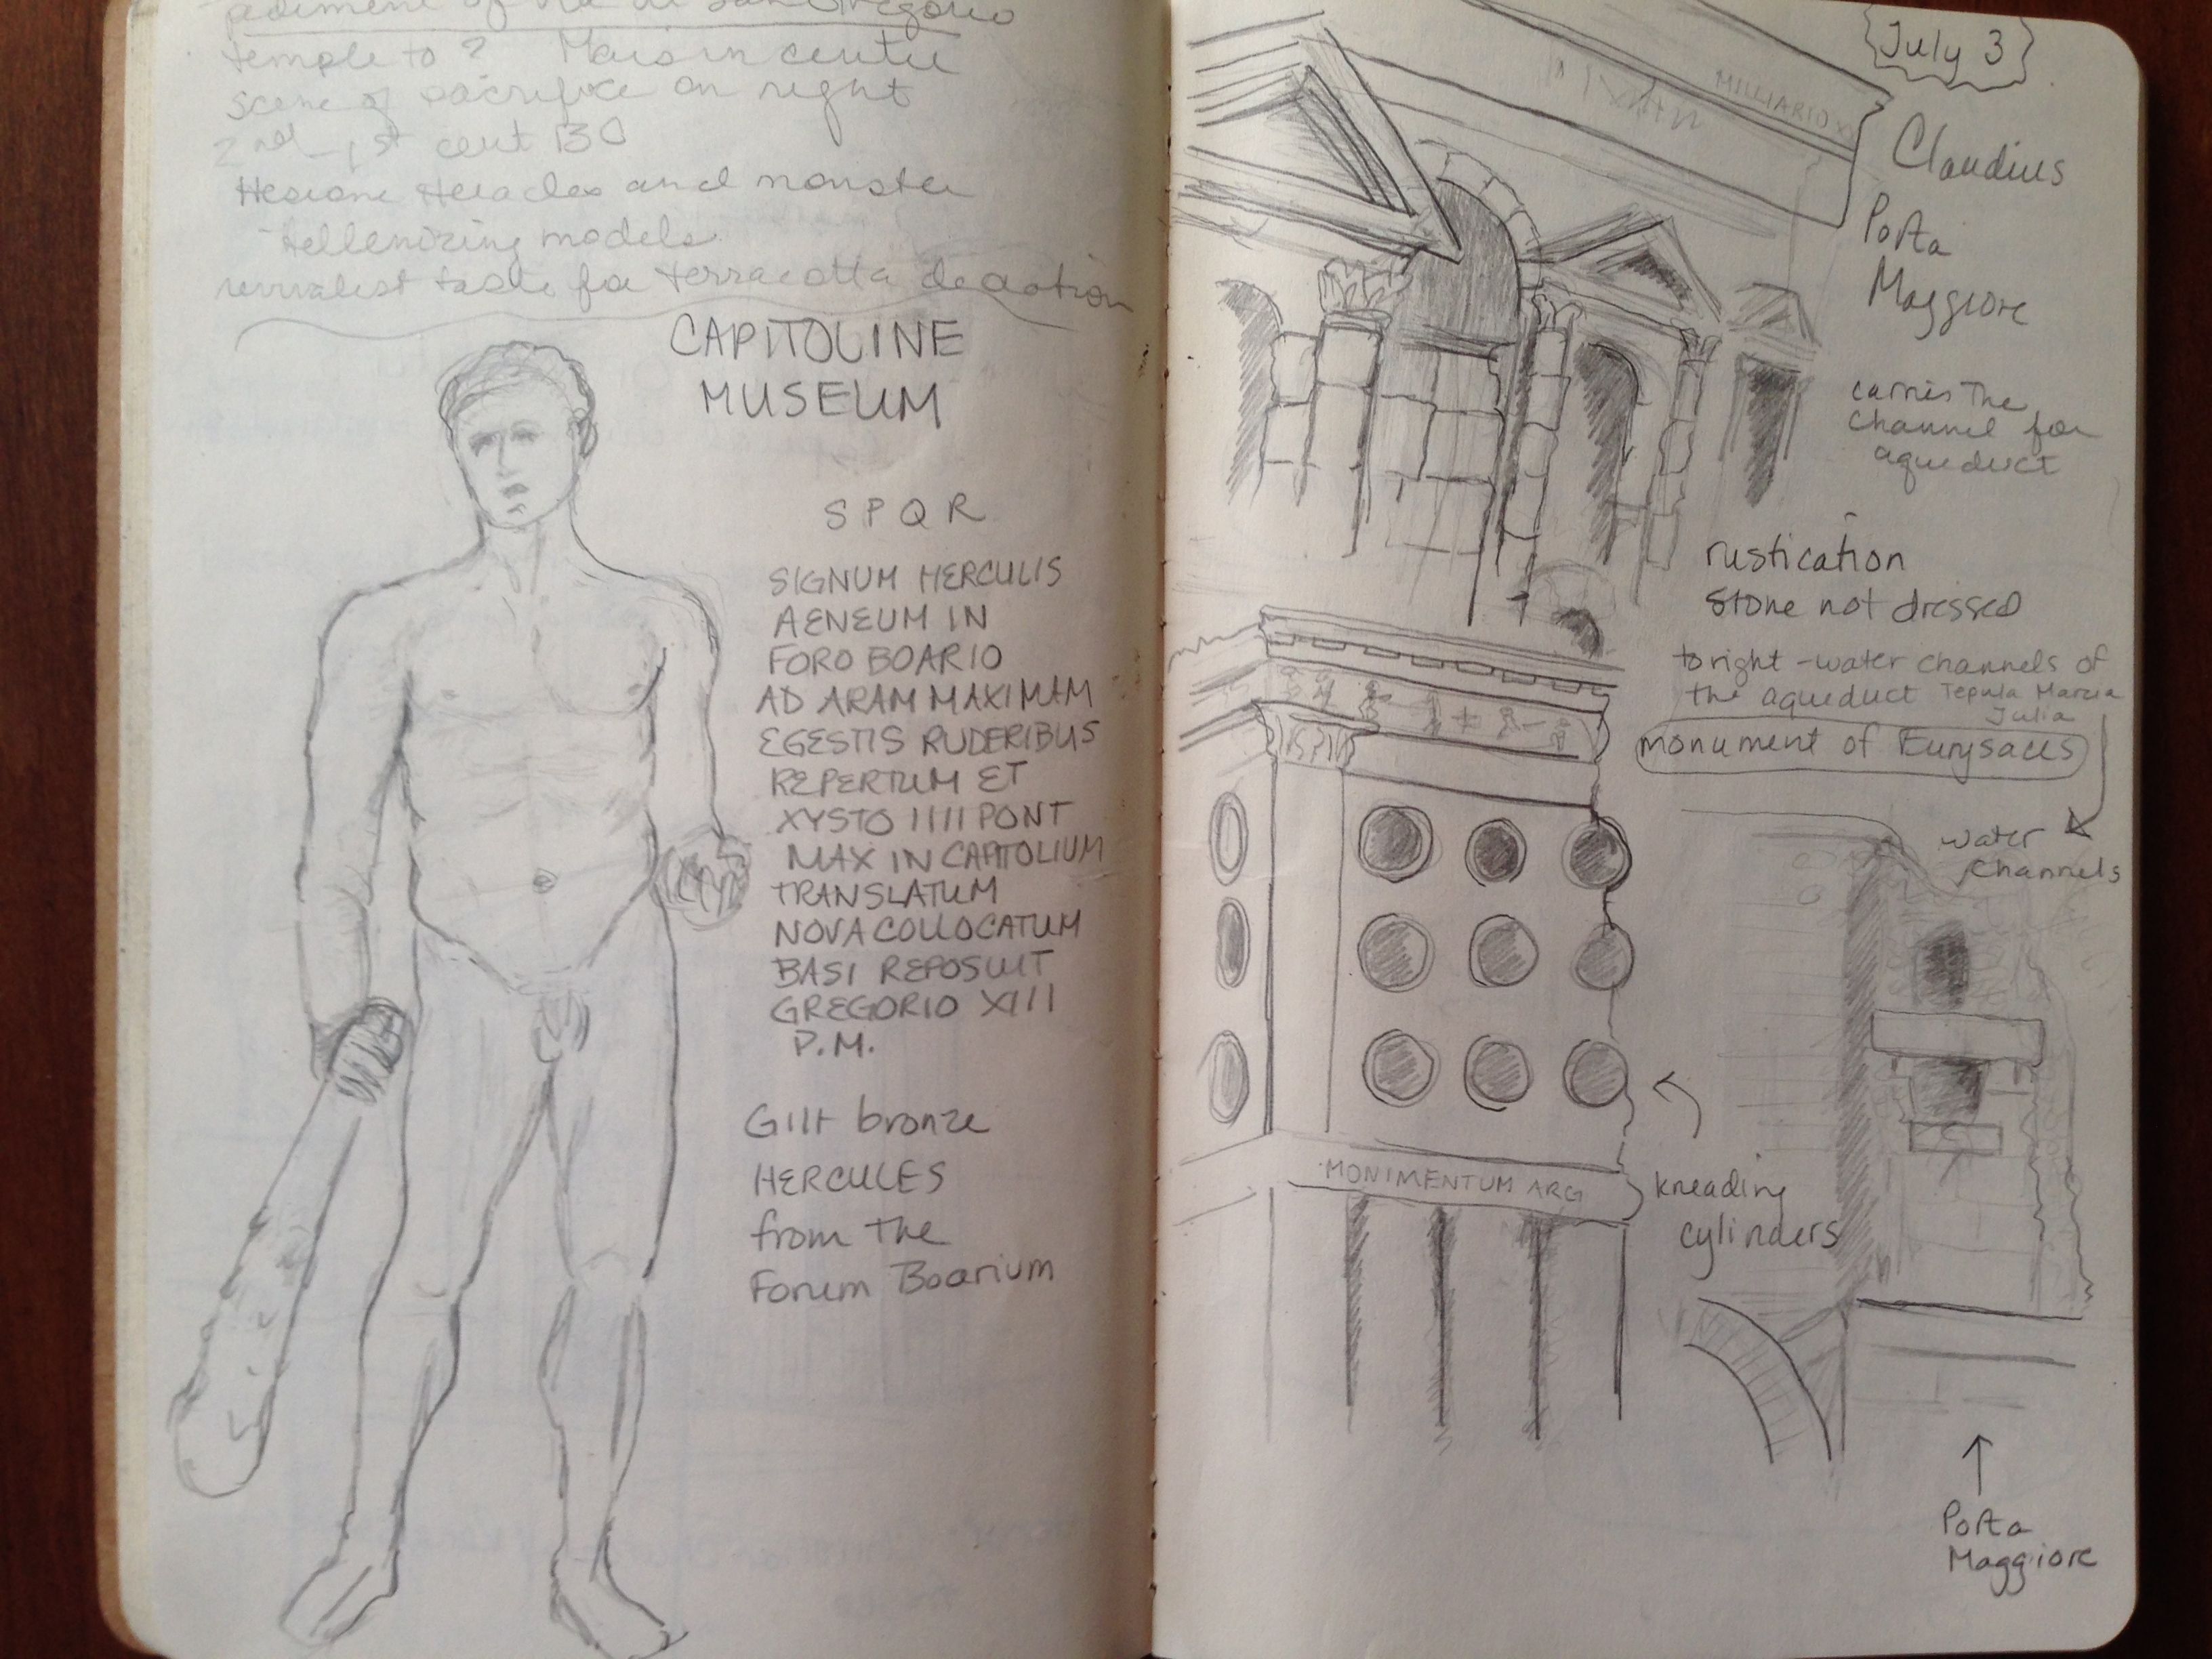 pediment of Via di San Gregorio
temple to ? Mars in centre
scene of sacrifice on right
2nd - 1st cent BC
Hesione Heracles and monster
Hellenizing models
revivalist taste for terracotta decoration
CAPITOLINE
MUSEUM
S P Q R
SIGNUM HERCULIS
AENEUM IN
FORO BOARIO
AD ARAM MAXIMAM
EGESTIS RUDERIBUS
REPERTUM ET
XYSTO IIII PONT
MAX IN CAPITOLIUM
TRANSLATUM
NOVA COLLOCATUM
BASI REPOSUIT
GREGORIO XIII
P.M.
Gilt bronze
HERCULES
from the
Forum Boarium
July 3
MILLIARIO X
Claudius
Porta
Maggiore
carries the
channel for
aqueduct
rustication
stone not dressed
to right - water channels of
the aqueduct Tepula Marcia
Julia
monument of Eurysaces
water
channels
MONIMENTUM ARG
kneading
cylinders
Porta
Maggiore